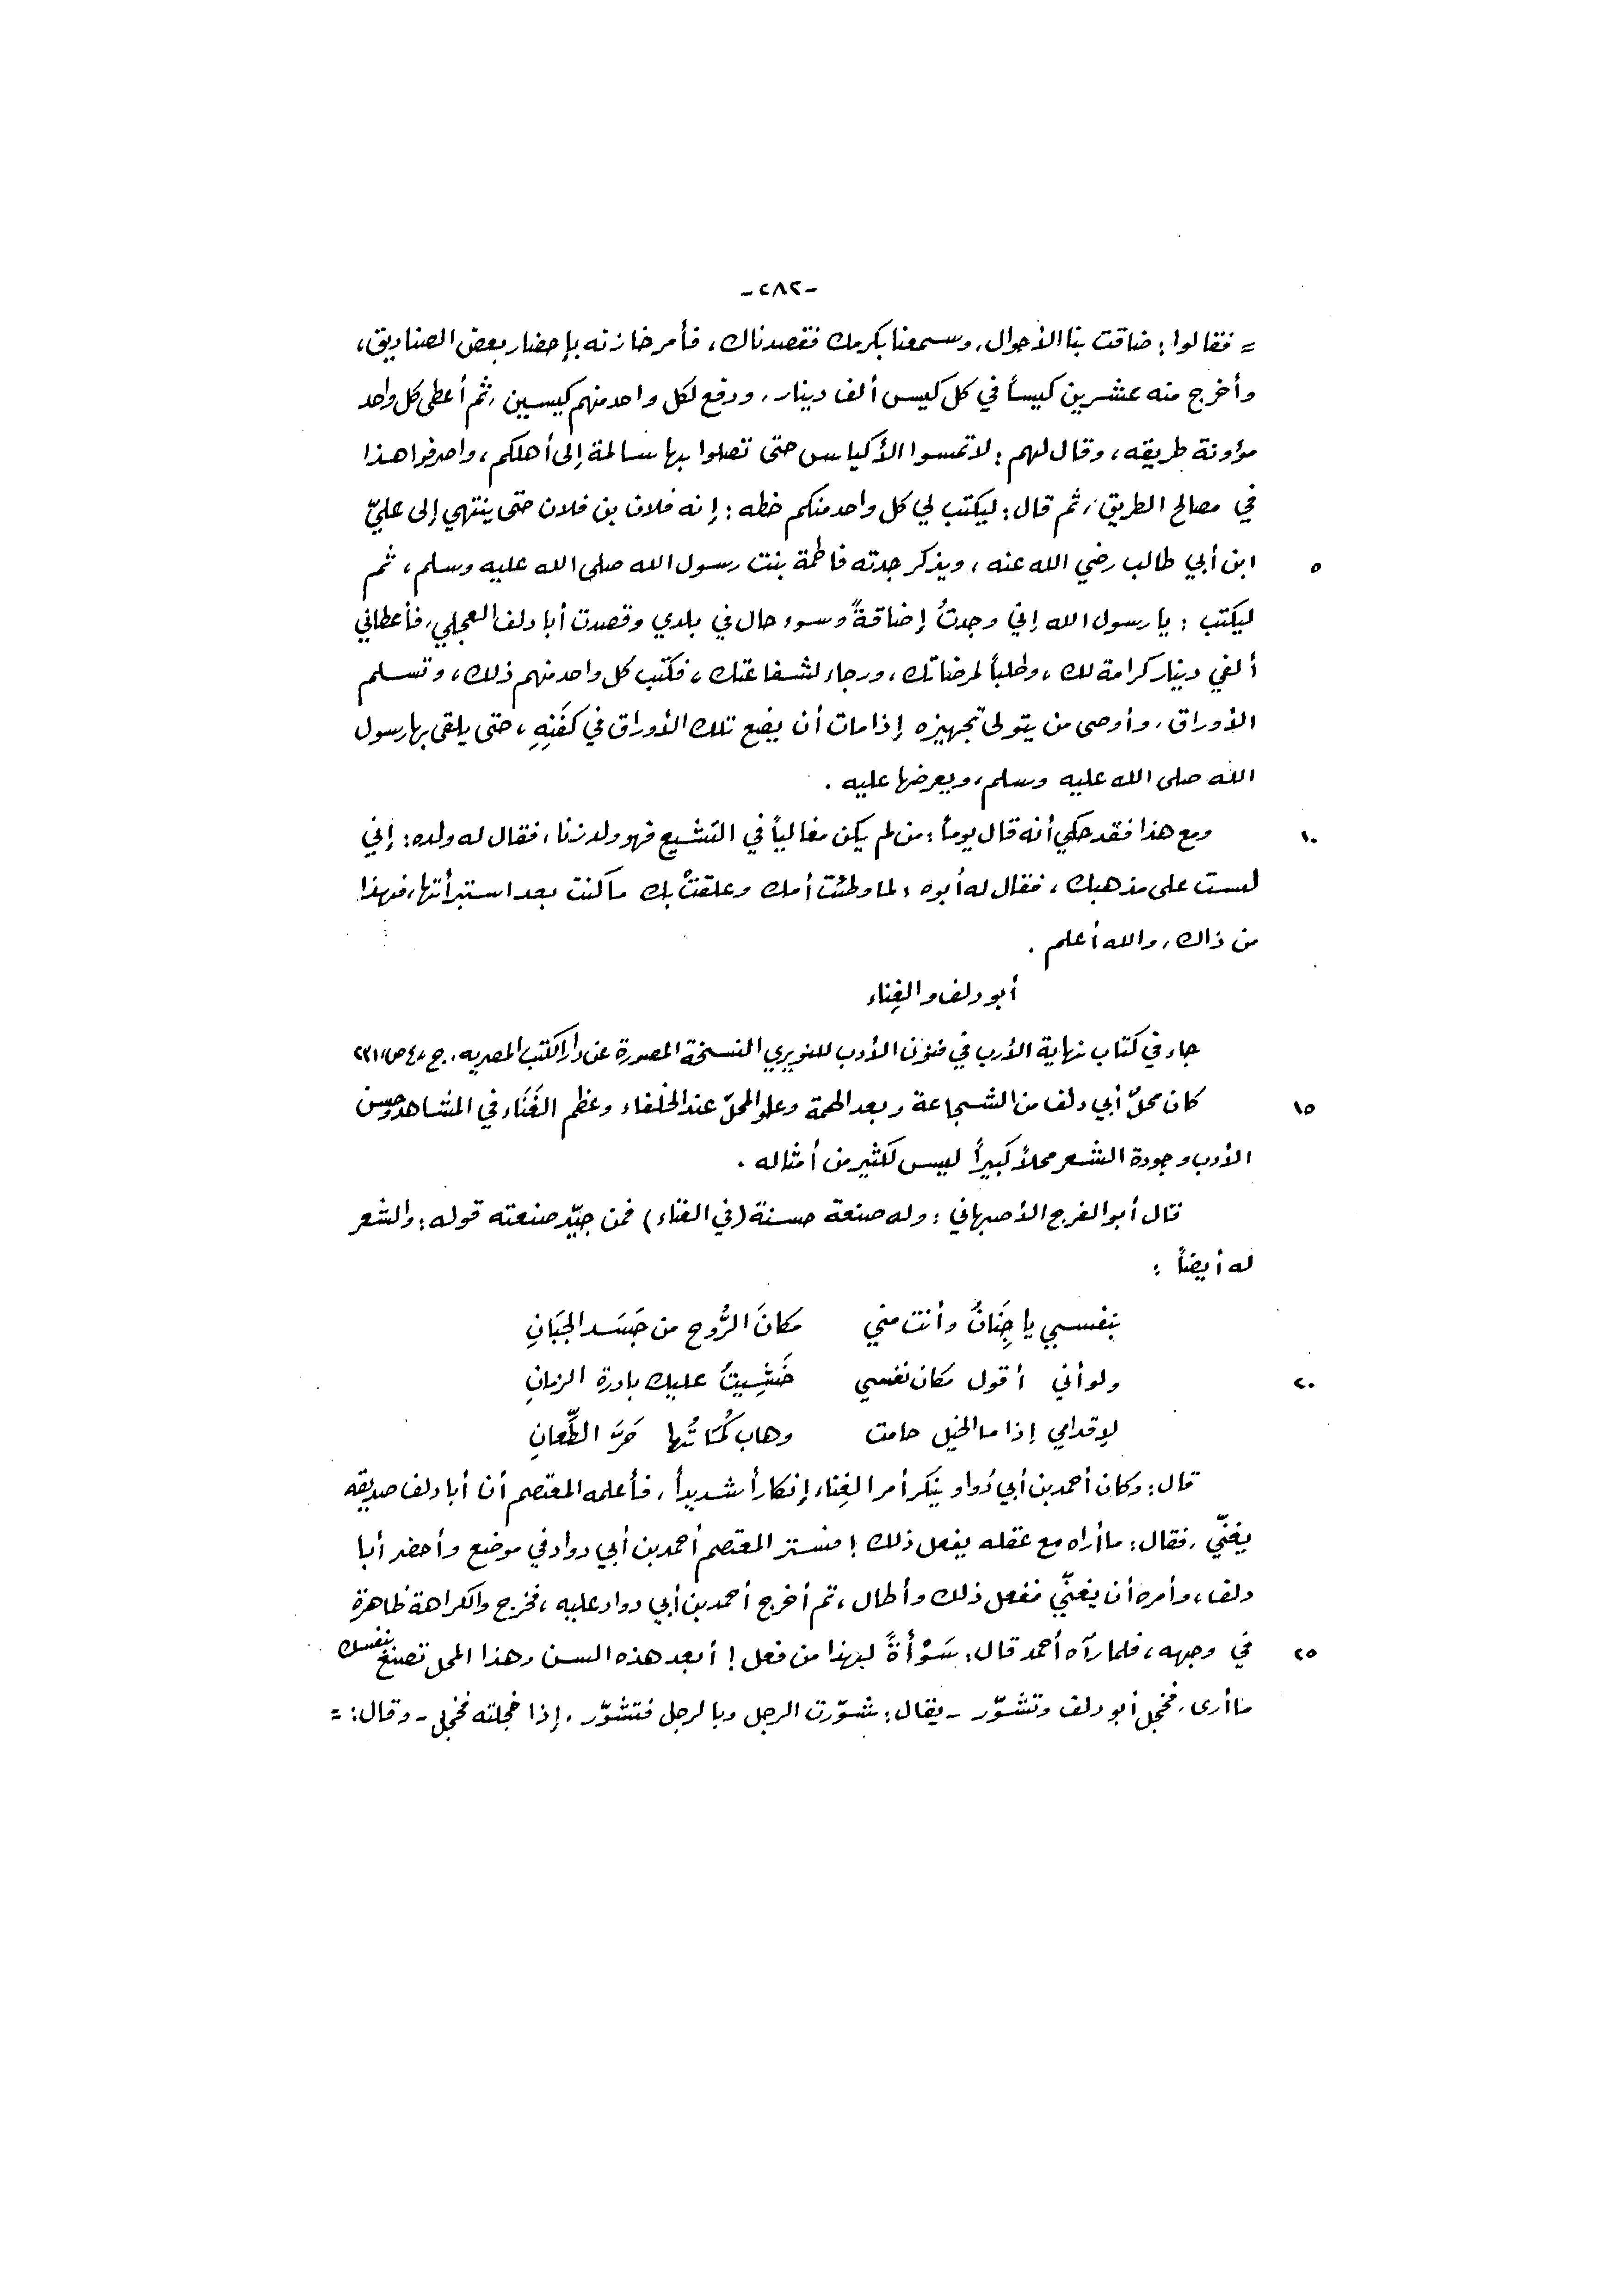 -٢٨٢-
= فقالوا: ضاقت بنا الأحوال، وسمعنا بكرمك فقصدناك، فأمر خازنه بإحضار بعض الصناديق،
وأخرج منه عشرين كيساً في كل كيس ألف دينار، ودفع لكل واحد منهم كيسين، ثم أعطى كل واحد
مؤونة طريقه، وقال لهم: لا تمسوا الأكياس حتى تصلوا بها سالمة إلى أهلكم، واصرفوا هذا
في مصالح الطريق، ثم قال: ليكتب لي كل واحد منكم خطه: إنه فلان بن فلان حتى ينتهي إلى عليّ
ابن أبي طالب رضي الله عنه، ويذكر جدته فاطمة بنت رسول الله صلى الله عليه وسلم، ثم ٥
ليكتب: يا رسول الله إني وجدتُ إضاقةً وسوء حال في بلدي وقصدت أبا دلف العجلي، فأعطاني
ألفي دينار كرامة لك، وطلباً لمرضاتك، ورجاء لشفاعتك، فكتب كل واحد منهم ذلك، وتسلم
الأوراق، وأوصى من يتولى تجهيزه إذا مات أن يضع تلك الأوراق في كفَنِهِ، حتى يلقى بها رسول
الله صلى الله عليه وسلم، ويعرضها عليه.
ومع هذا فقد حكي أنه قال يوماً: من لم يكن مغالياً في التشيع فهو ولد زنا، فقال له ولده: إني ١٠
لست على مذهبك، فقال له أبوه: لما وطئت أمك وعلقتْ بك ما كنت بعد استبرأتها، فهذا
من ذاك، والله أعلم.
أبو دلف والغِناء
جاء في كتاب نهاية الأرب في فنون الأدب للنويري النسخة المصورة عن دار الكتب المصريه. ج ٤، ص ٢٣١
كان محلّ أبي دلف من الشجاعة وبعد الهمة وعلو المحلّ عند الخلفاء وعظم الغَنَاء في المشاهد وحسن ١٥
الأدب وجودة الشعر محلاً كبيراً ليس لكثير من أمثاله.
قال أبو الفرج الأصبهاني: وله صنعة حسنة (في الغناء) فمن جيّد صنعته قوله: والشعر
له أيضاً:
بنفسي يا جِنَانُ وأنت مني مكانَ الرُّوح من جَسَد الجَبَانِ
ولو أني أقول مكان نفسي خَشِيتُ عليك بادرة الزمانِ ٢٠
لإقدامي إذا ما الخيل حامت وهاب كُمَاتُها حَرَّ الطِّعانِ
قال: وكان أحمد بن أبي دُواد ينكر أمر الغِناء إنكاراً شديداً، فأعلمه المعتصم أن أبا دلف صديقه
يغنّي، فقال: ما أراه مع عقله يفعل ذلك! فستر المعتصم أحمد بن أبي دواد في موضع وأحضر أبا
دلف، وأمره أن يغنّي ففعل ذلك وأطال، ثم أخرج أحمد بن أبي دواد عليه، فخرج والكراهة ظاهرة
في وجهه، فلما رآه أحمد قال: سَوْأةً لهذا من فعل! أبعد هذه السن وهذا المحل تصنع بنفسك ٢٥
ما أرى، فخجل أبو دلف وتشوّر - يقال: شوّرت الرجل وبالرجل فتشوّر، إذا خجلته فخجل - وقال: =